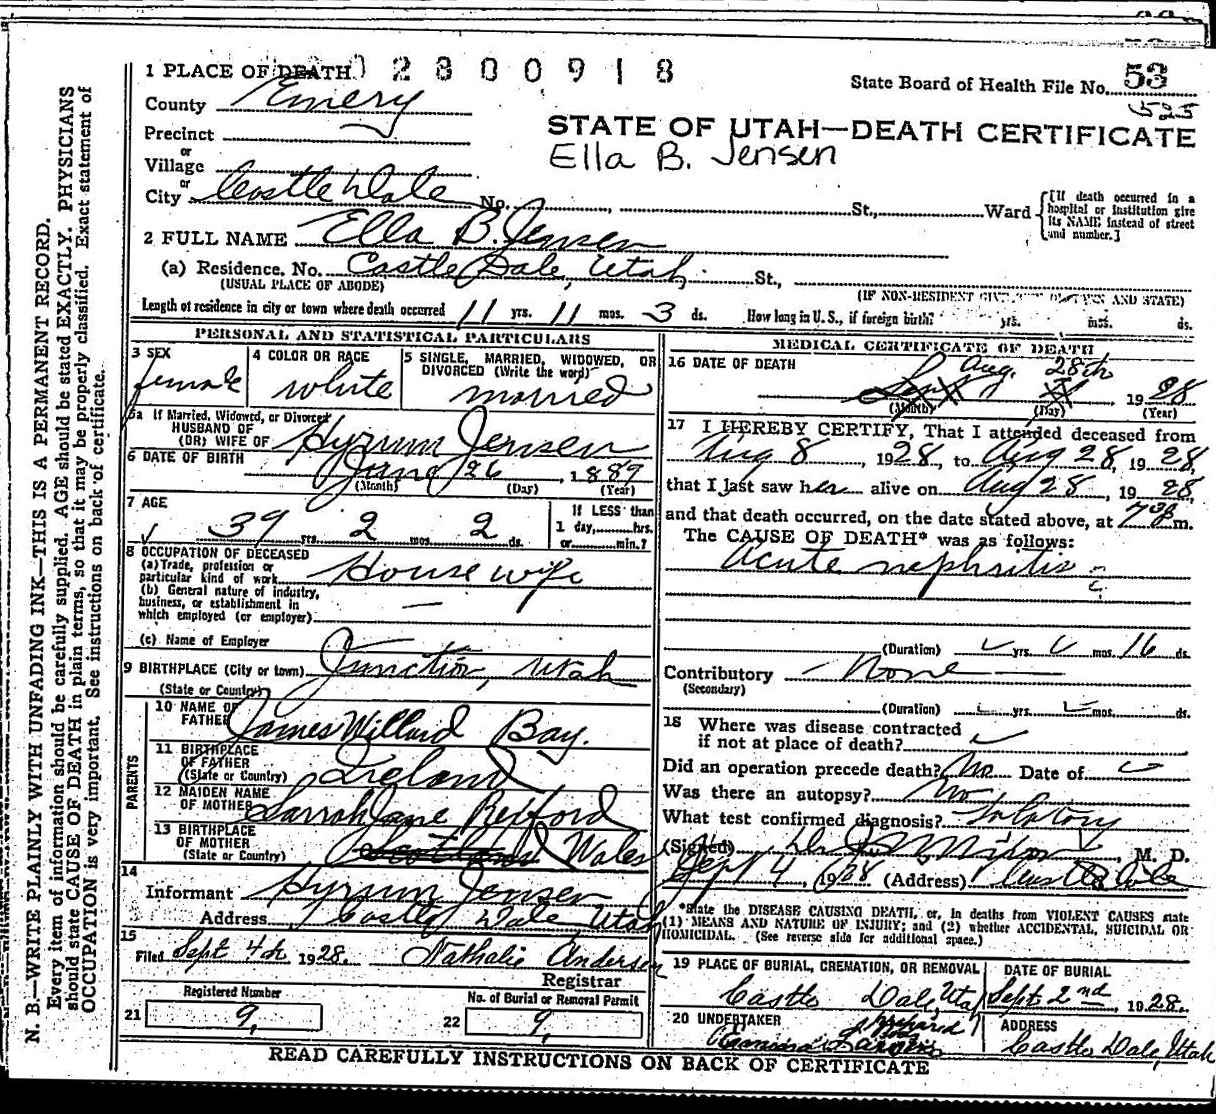 N. B.—WRITE PLAINLY WITH UNFADING INK—THIS IS A PERMANENT RECORD.
Every item of information should be carefully supplied. AGE should be stated EXACTLY. PHYSICIANS
should state CAUSE OF DEATH in plain terms, so that it may be properly classified. Exact statement of
OCCUPATION is very important. See instructions on back of certificate.
1 PLACE OF DEATH 02800918
State Board of Health File No. 53
525
County Emery
STATE OF UTAH—DEATH CERTIFICATE
Ella B. Jensen
Precinct
or
Village
or
City Castle Dale No. St., Ward
[If death occurred in a
hospital or institution give
its NAME instead of street
and number.]
2 FULL NAME Ella B. Jensen
(a) Residence. No. Castle Dale, Utah. St.,
(USUAL PLACE OF ABODE)
(IF NON-RESIDENT AND STATE)
Length of residence in city or town where death occurred 11 yrs. 11 mos. 3 ds. How long in U.S., if foreign birth? yrs. mos. ds.
PERSONAL AND STATISTICAL PARTICULARS
3 SEX
female
4 COLOR OR RACE
white
5 SINGLE, MARRIED, WIDOWED, OR
DIVORCED (Write the word)
married
5a If Married, Widowed, or Divorced
HUSBAND OF
(OR) WIFE OF Hyrum Jensen
6 DATE OF BIRTH
June 26, 1889
(Month) (Day) (Year)
7 AGE
39 yrs. 2 mos. 2 ds.
If LESS than
1 day, hrs.
or min.?
8 OCCUPATION OF DECEASED
(a) Trade, profession or
particular kind of work House wife
(b) General nature of industry,
business, or establishment in
which employed (or employer) —
(c) Name of Employer
9 BIRTHPLACE (City or town) Junction, Utah
(State or Country)
PARENTS
10 NAME OF
FATHER James Willard Bay.
11 BIRTHPLACE
OF FATHER
(State or Country) Ireland
12 MAIDEN NAME
OF MOTHER Sarrah Jane Rexford
13 BIRTHPLACE
OF MOTHER
(State or Country) Scotland Wales
14
Informant Hyrum Jensen
Address Castle Dale, Utah
15
Filed Sept 4th 1928. Nathalie Andersen
Registrar
Registered Number
21 9,
No. of Burial or Removal Permit
22 9,
MEDICAL CERTIFICATE OF DEATH
16 DATE OF DEATH Aug. 28th
Sept 1928
(Month) (Day) (Year)
17 I HEREBY CERTIFY, That I attended deceased from
Aug 8, 1928, to Aug 28, 1928,
that I last saw her alive on Aug 28, 1928,
and that death occurred, on the date stated above, at m.
The CAUSE OF DEATH* was as follows:
Acute nephritis
(Duration) yrs. mos. 16 ds.
Contributory None
(Secondary)
(Duration) yrs. mos. ds.
18 Where was disease contracted
if not at place of death?
Did an operation precede death? No Date of
Was there an autopsy? No
What test confirmed diagnosis?
(Signed) M. D.
Sept 4, 1928 (Address) Castle Dale
*State the DISEASE CAUSING DEATH, or, in deaths from VIOLENT CAUSES state
(1) MEANS AND NATURE OF INJURY; and (2) whether ACCIDENTAL, SUICIDAL OR
HOMICIDAL. (See reverse side for additional space.)
19 PLACE OF BURIAL, CREMATION, OR REMOVAL
Castle Dale, Utah
DATE OF BURIAL
Sept. 2nd 1928.
20 UNDERTAKER
ADDRESS
Castle Dale, Utah
READ CAREFULLY INSTRUCTIONS ON BACK OF CERTIFICATE